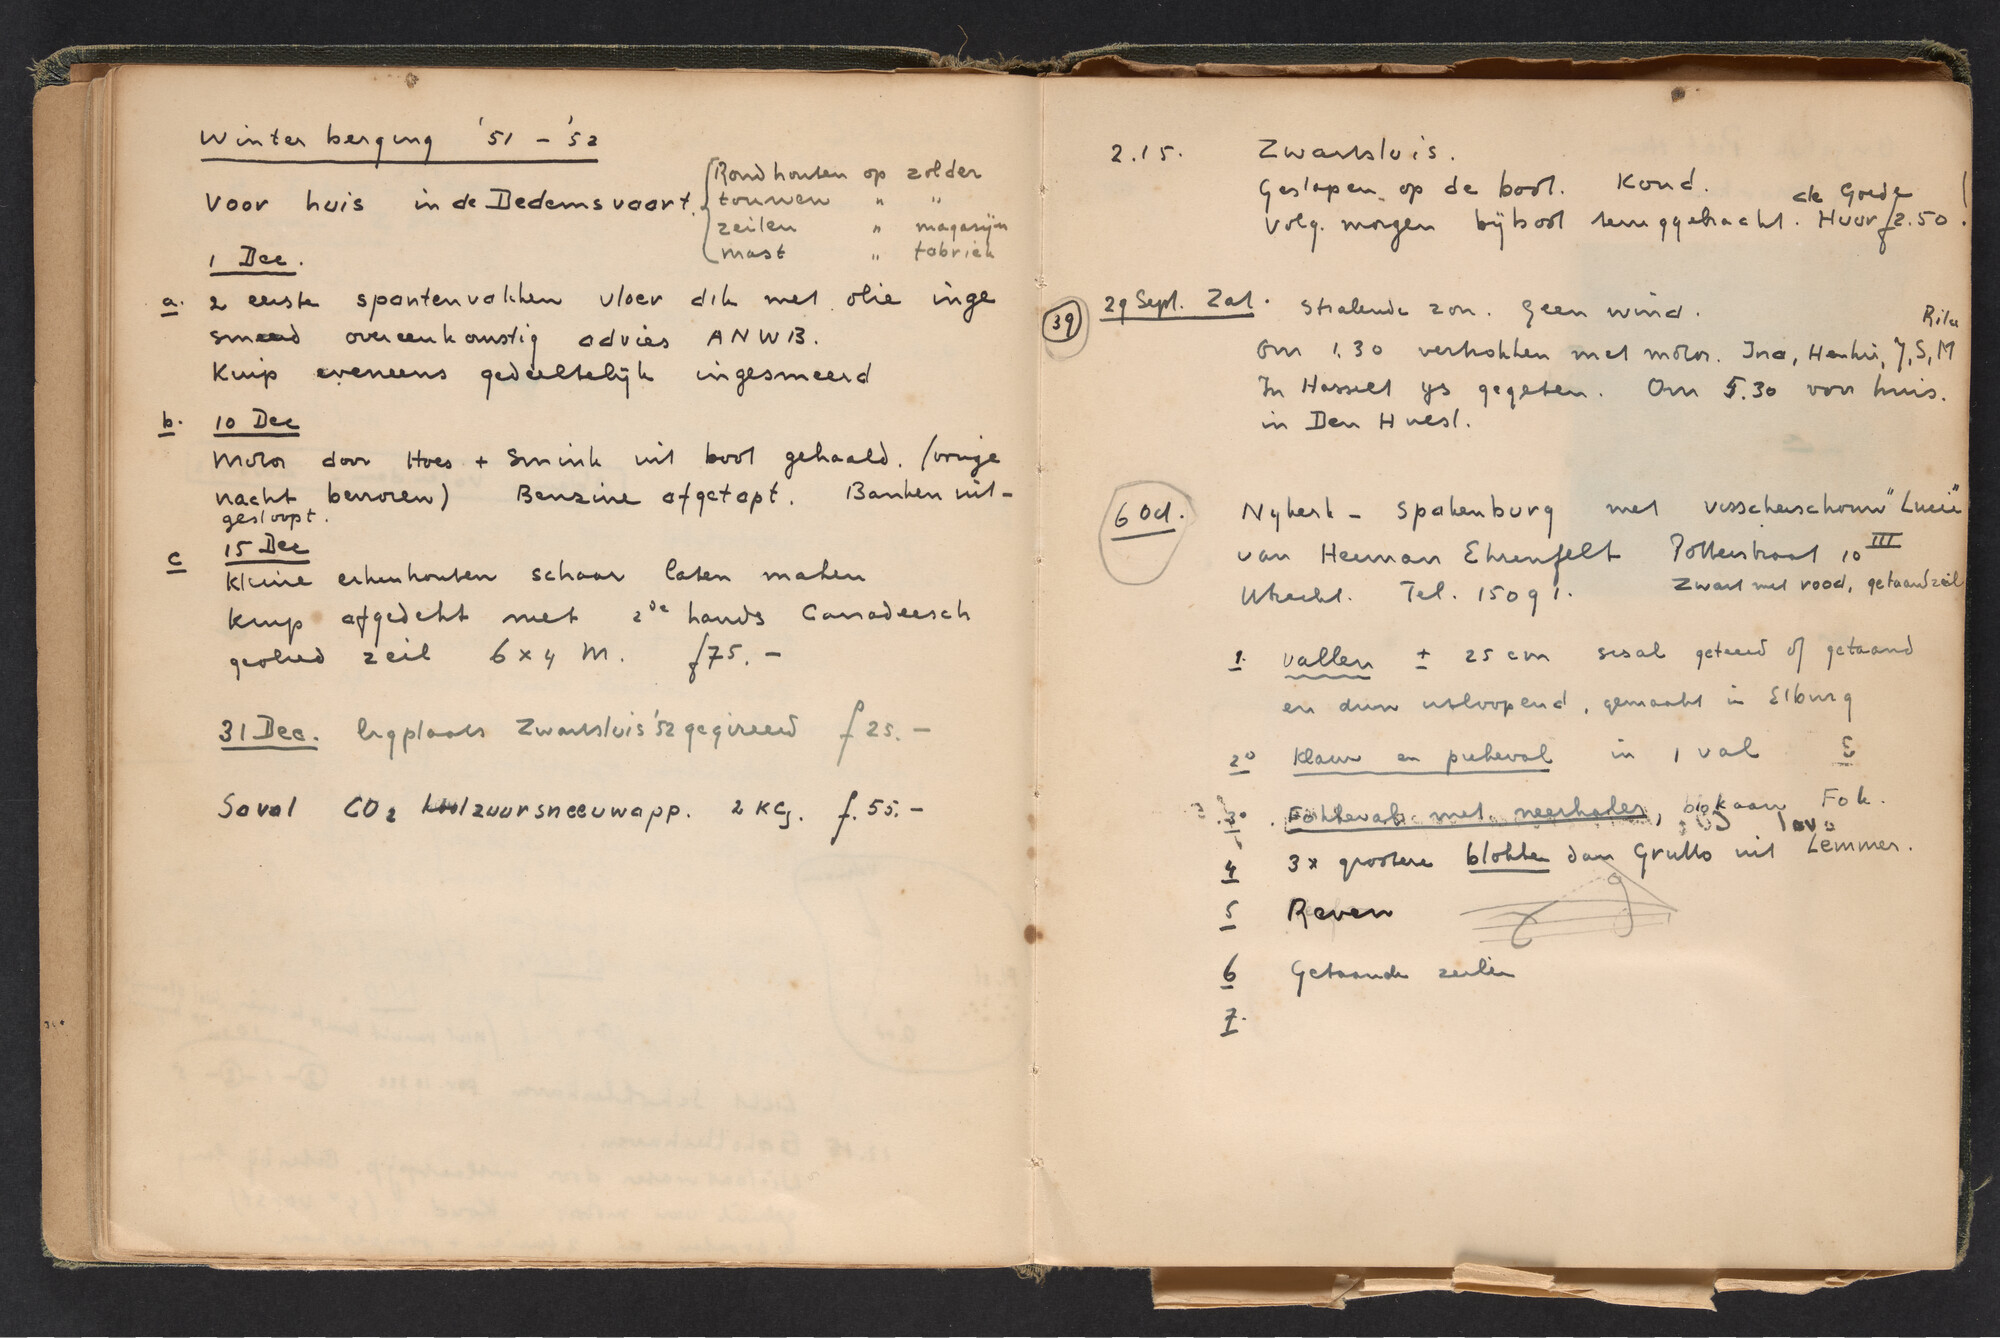 Winterberging '51 - '52
Voor huis in de Dedemsvaart.
Rondhouten op zolder
touwen " "
zeilen " magazijn
mast " fabriek
1 Dec.
a. 2 eerste spantenvakken vloer dik met olie inge
smeed overeenkomstig advies ANWB.
Kuip eveneens gedeeltelijk ingesmeerd
b. 10 Dec
Motor door Hoes + Smink uit boot gehaald. (vorige
nacht bevroren) Benzine afgetapt. Banken uit-
gesloopt.
c 15 Dec
Kleine eikenhouten schaar laten maken
Kuip afgedekt met 2de hands Canadeesch
geolied zeil 6 x 4 M. f 75.-
31 Dec. ligplaats Zwartsluis '52 gegireerd f 25.-
Saval CO2 koolzuursneeuwapp. 2 KG. f. 55.-
2.15. Zwartsluis.
Geslapen op de boot. Koud.
de Goede
Volg. morgen bijboot teruggebracht. Huur f 2.50!
39 29 Sept. Zat. Stralende zon. Geen wind.
Om 1.30 vertrokken met motor. Ina, Henkie, J, S, M
In Hasselt ys gegeten. Om 5.30 voor huis.
in Den Hulst.
6 Oct. Nykerk - Spakenburg met visscherschouw "Lucie"
van Herman Ehrenfelt Potterstraat 10 III
Utrecht. Tel. 15091. Zwart met rood, getaand zeil
1. vallen ± 25 cm sisal geteerd of getaand
en dun uitloopend, gemaakt in Elburg
2o Klauw en piekeval in 1 val
3o Fokkeval met neerhaler, blok aan Fok.
4 3 x grootere blokken dan Grutto uit Lemmer.
5 Reven
6 Getaande zeilen
7.